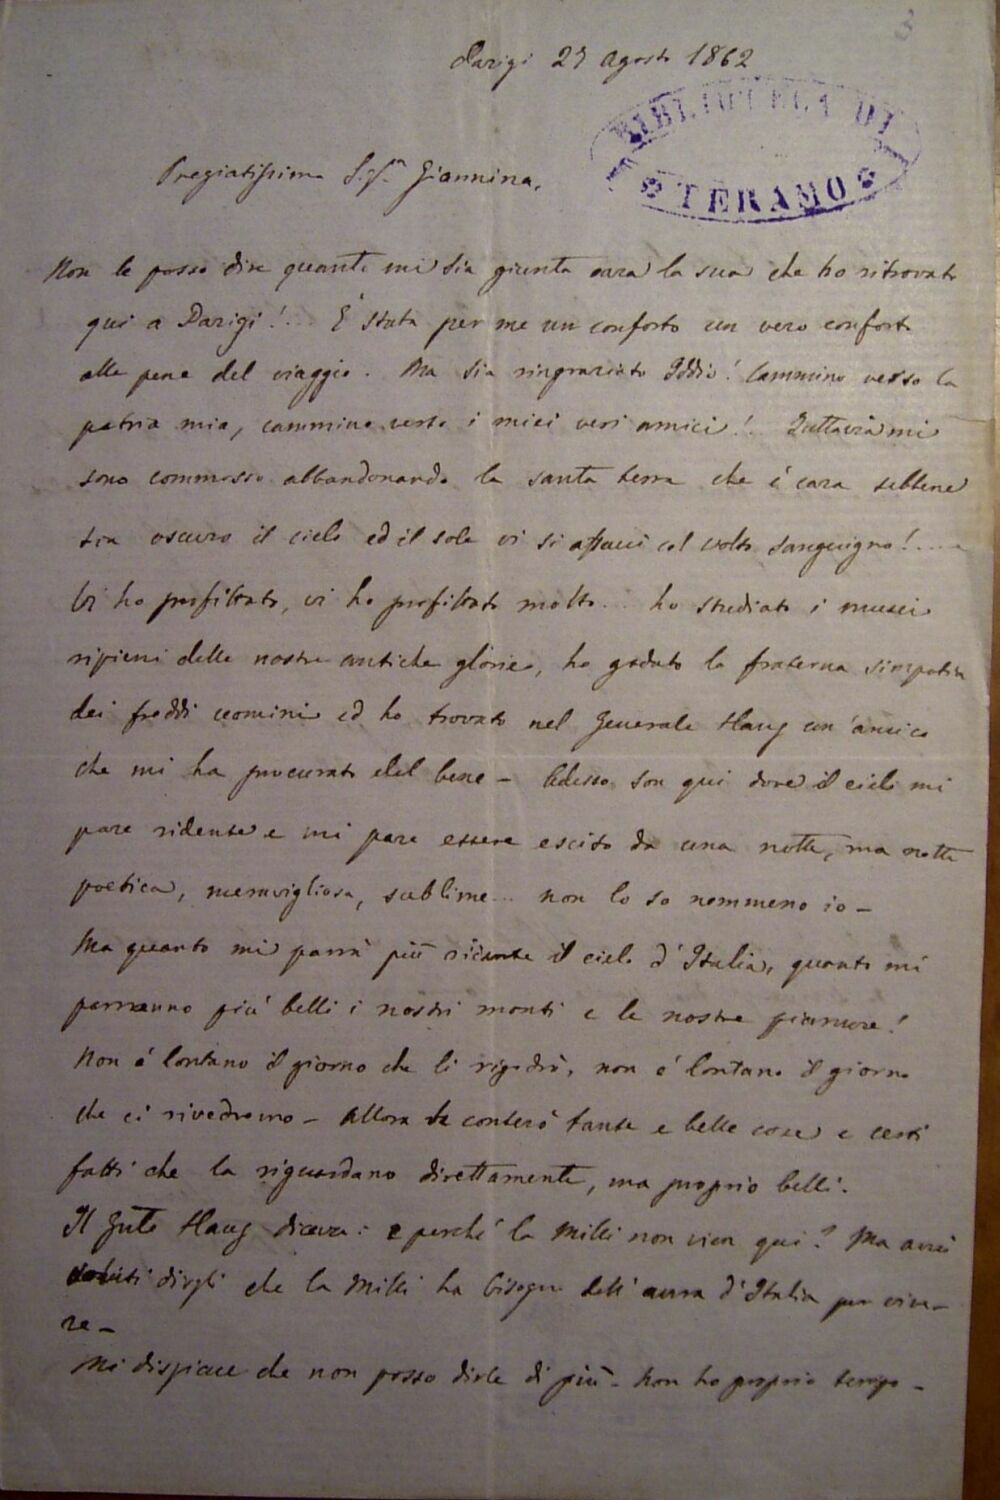 3
Parigi 27 Agosto 1862
BIBLIOTECA DI
TERAMO
Pregiatissima Sigra Giannina,
Non le posso dire quanto mi sia giunta cara la sua che ho ritrovato
qui a Parigi!... È stata per me un conforto un vero conforto
alle pene del viaggio. Ma sia ringraziato Iddio! Cammino verso la
patria mia, cammino verso i miei veri amici!.. Tuttavia mi
sono commosso abbandonando la santa terra che è cara sebbene
sia oscuro il cielo ed il sole vi si affacci col volto sanguigno!....
Vi ho profittato, vi ho profittato molto... ho studiato i musei
ripieni delle nostre antiche glorie, ho goduto la fraterna simpatia
dei freddi uomini ed ho trovato nel Generale Haug un' amico
che mi ha procurato del bene – Adesso son qui dove il cielo mi
pare ridente e mi pare essere escito da una notte, ma notte
poetica, meravigliosa, sublime... non lo so nemmeno io –
Ma quanto mi parrà più ridente il cielo d'Italia, quanto mi
parranno più belli i nostri monti e le nostre pianure!
Non è lontano il giorno che li rigodrò, non è lontano il giorno
che ci rivedremo – Allora le conterò tante e belle cose e certi
fatti che la riguardano direttamente, ma proprio belli.
Il Haug diceva: e perché la Milli non vien qui? Ma avrei
voluto dirgli che la Milli ha bisogno dell' aura d'Italia per vive-
re –
Mi dispiace che non posso dirle di più – Non ho proprio tempo –